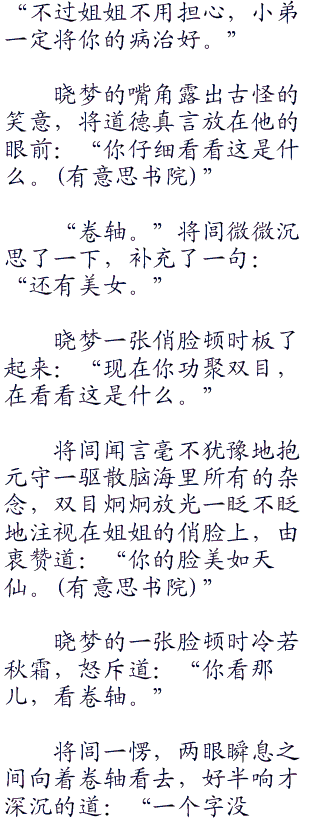 “不过姐姐不用担心，小弟
一定将你的病治好。”
晓梦的嘴角露出古怪的
笑意，将道德真言放在他的
眼前：“你仔细看看这是什
么。(有意思书院)”
“卷轴。”将闾微微沉
思了一下，补充了一句：
“还有美女。”
晓梦一张俏脸顿时板了
起来：“现在你功聚双目，
在看看这是什么。”
将闾闻言毫不犹豫地抱
元守一驱散脑海里所有的杂
念，双目炯炯放光一眨不眨
地注视在姐姐的俏脸上，由
衷赞道：“你的脸美如天
仙。(有意思书院)”
晓梦的一张脸顿时冷若
秋霜，怒斥道：“你看那
儿，看卷轴。”
将闾一愣，两眼瞬息之
间向着卷轴看去，好半响才
深沉的道：“一个字没